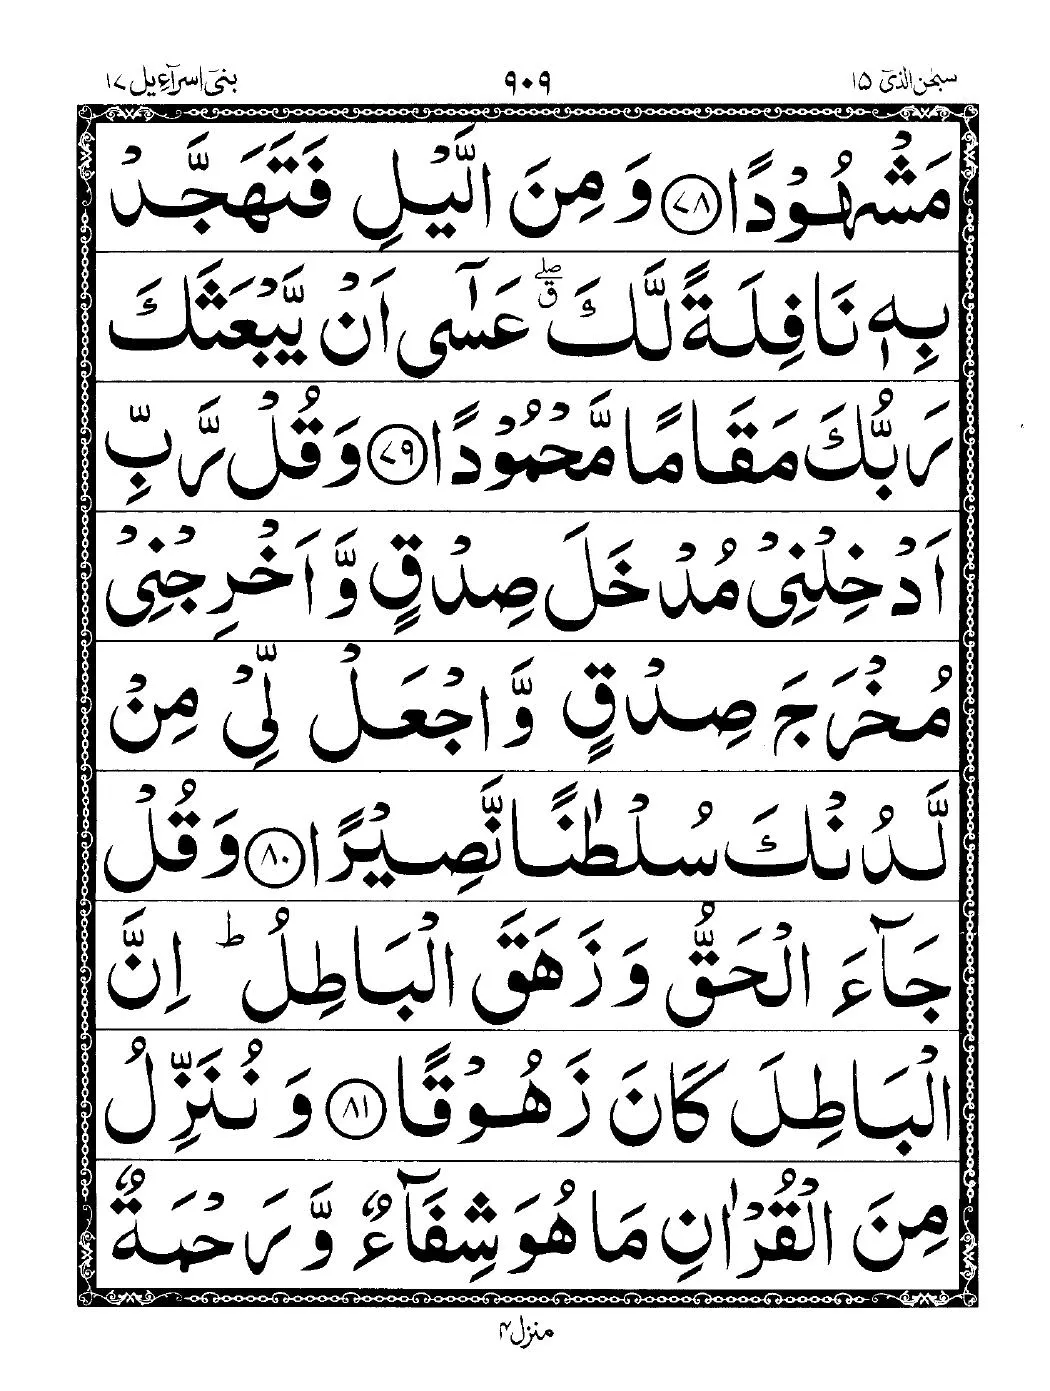 سبحٰن الذیٓ ۱۵ ۹۰۹ بنیٓ اسرآءیل ۱۷
مَشْهُوْدًا ﴿۷۸﴾ وَ مِنَ الَّيْلِ فَتَهَجَّدْ
بِهٖ نَافِلَةً لَّكَ ۖۗ عَسٰۤى اَنْ يَّبْعَثَكَ
رَبُّكَ مَقَامًا مَّحْمُوْدًا ﴿۷۹﴾ وَ قُلْ رَّبِّ
اَدْخِلْنِيْ مُدْخَلَ صِدْقٍ وَّ اَخْرِجْنِيْ
مُخْرَجَ صِدْقٍ وَّ اجْعَلْ لِّيْ مِنْ
لَّدُنْكَ سُلْطٰنًا نَّصِيْرًا ﴿۸۰﴾ وَ قُلْ
جَآءَ الْحَقُّ وَ زَهَقَ الْبَاطِلُ ؕ اِنَّ
الْبَاطِلَ كَانَ زَهُوْقًا ﴿۸۱﴾ وَ نُنَزِّلُ
مِنَ الْقُرْاٰنِ مَا هُوَ شِفَآءٌ وَّ رَحْمَةٌ
منزل ۴